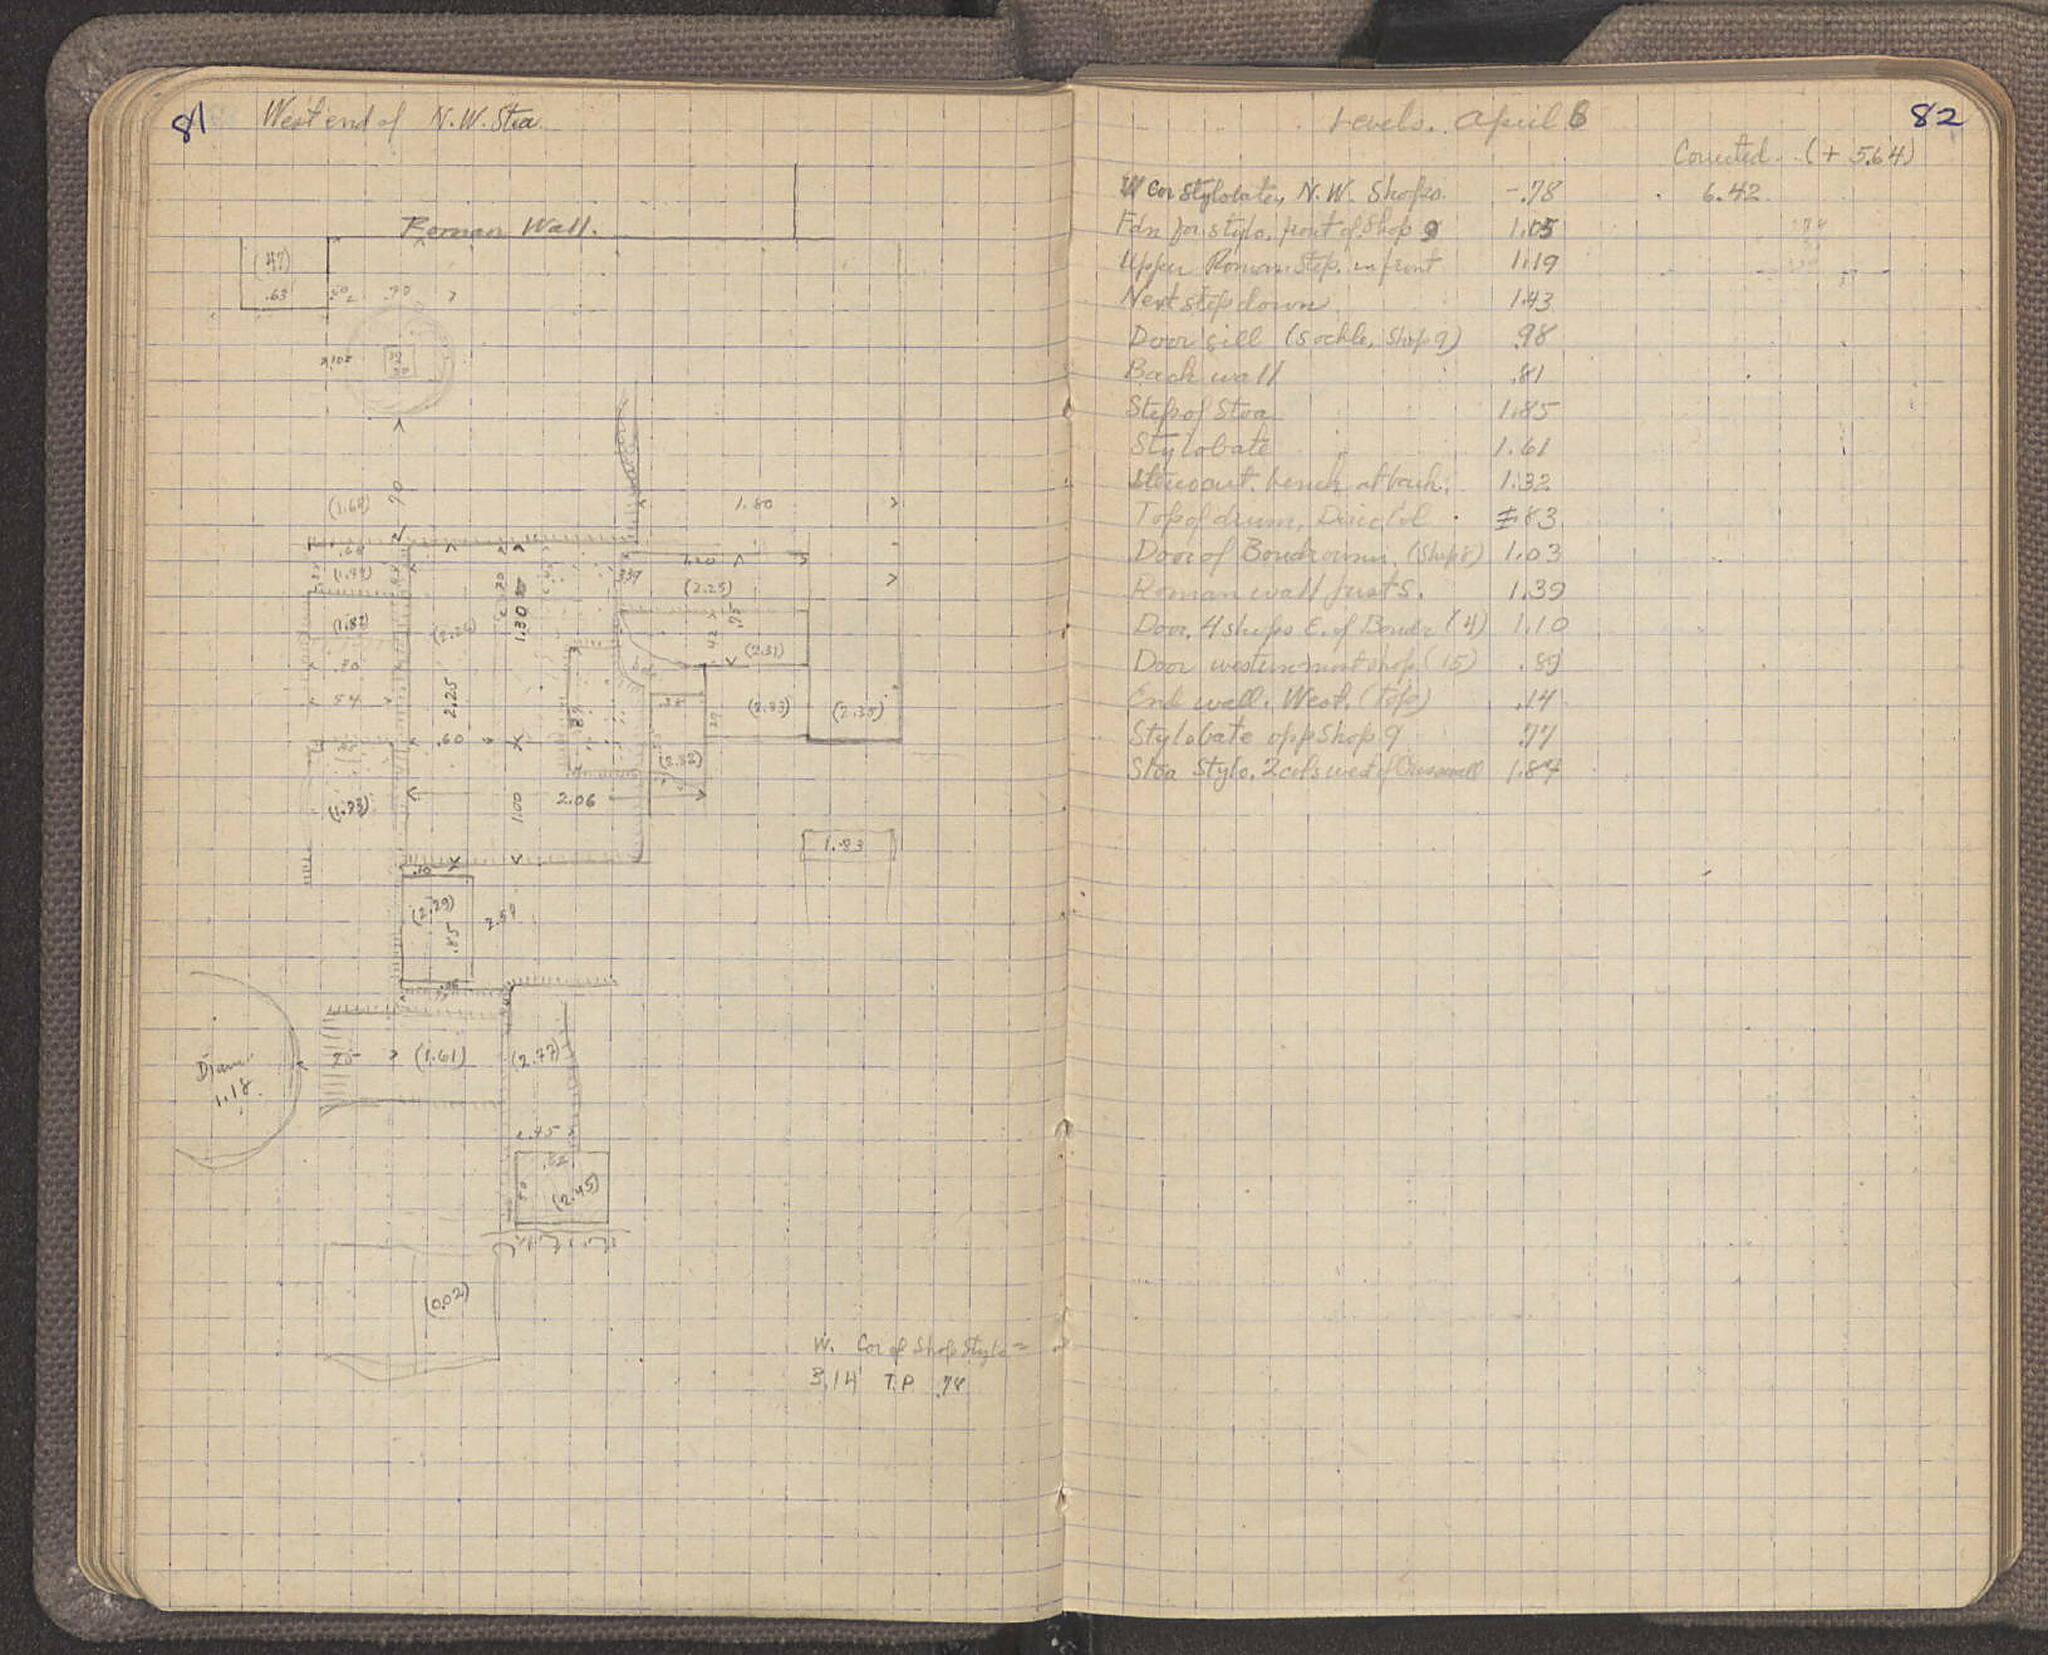 81
West end of N.W. Stoa.
Roman Wall.
(.47)
.63
.70
(1.68)
1.80
1.20
.339
(2.25)
(1.82)
1.30
.75
.42
(2.31)
.70
.54
2.25
.60
.87
.38
(2.33)
(2.35)
(2.32)
(1.93)
1.00
2.06
1.83
.10
(2.29)
.85
2.59
Diam
1.18
(1.61)
(2.77)
.45
.52
(2.45)
(0.02)
W. Cor of Shop Stylo =
3.14 T.P. .78
82
Levels. April 6
Corrected (+ 5.64)
W Cor Stylobate, N.W. Shops. -.78 6.42
Fdn for stylo. front of Shop 9 1.05
Upper Roman Step. in front 1.19
Next step down 1.43
Door sill (Sockle, Shop 9) .98
Back wall .81
Step of Stoa 1.85
Stylobate 1.61
bench at back. 1.32
Top of drum, Col. .83
Door of (Shop 8) 1.03
Roman wall just S. 1.39
Door, 4 shops E. of (4) 1.10
Door westernmost shop (15) .89
End wall. West. (Top) .14
Stylobate opp Shop 9 .77
Stoa Stylo. 2 cols west of 1.84